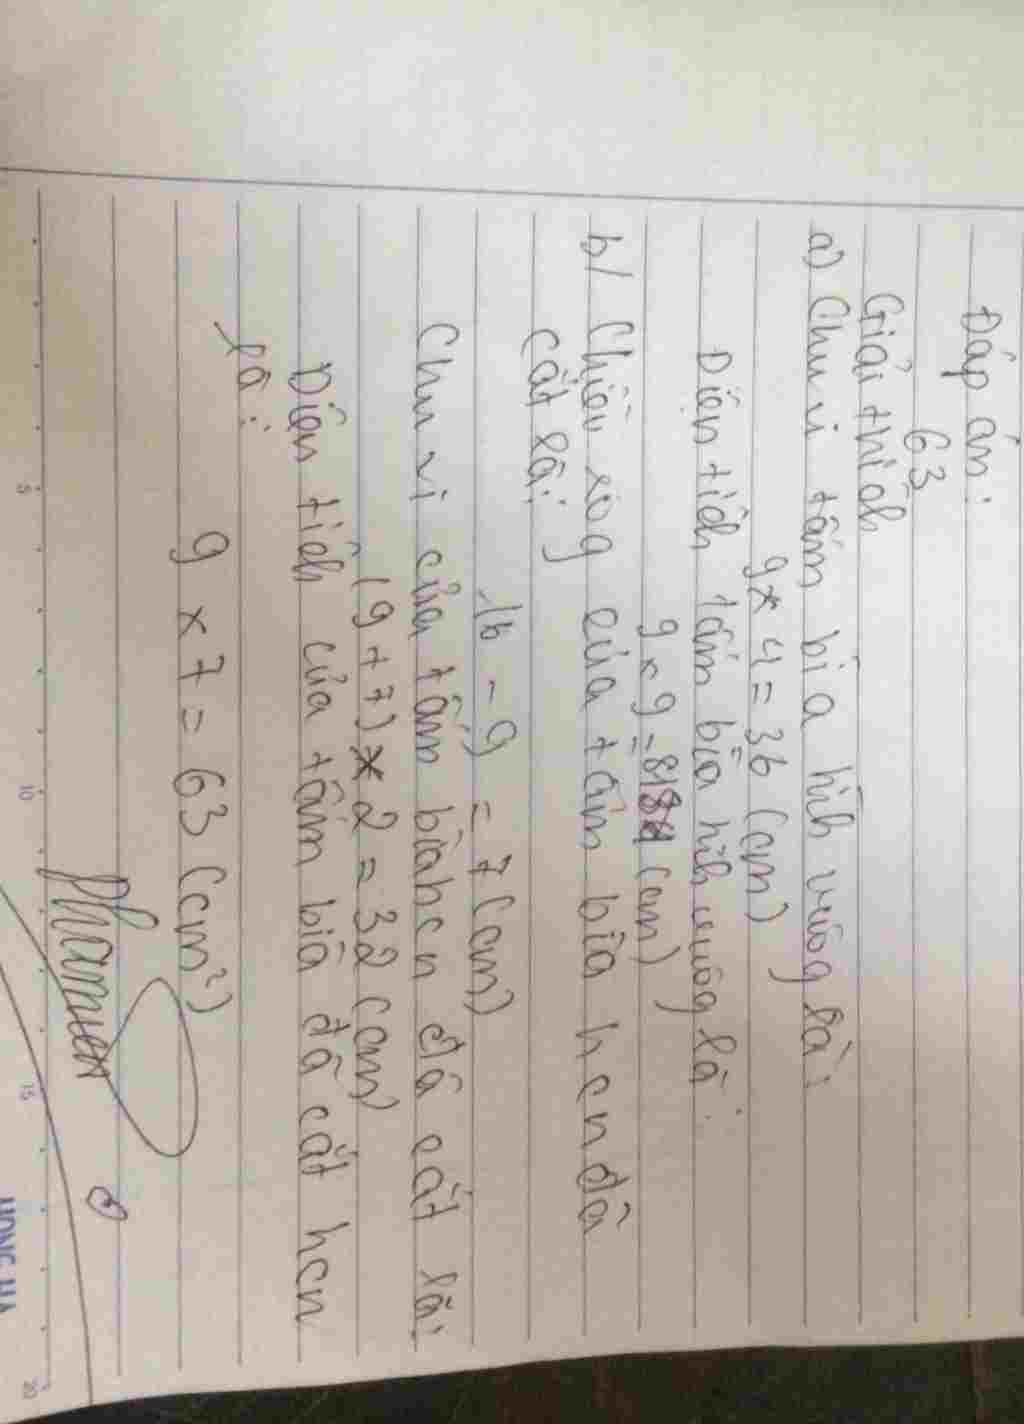 Đáp án:
63
Giải thích
a) Chu vi tấm bìa hình vuông là:
9 x 4 = 36 (cm)
Diện tích tấm bìa hình vuông là:
9 x 9 = 81 (cm)
b/ Chiều rộng của tấm bìa hcn đã
cắt là:
16 - 9 = 7 (cm)
Chu vi của tấm bìa hcn đã cắt là:
(9 + 7) x 2 = 32 (cm)
Diện tích của tấm bìa đã cắt hcn
là:
9 x 7 = 63 (cm²)
5
10
15
20